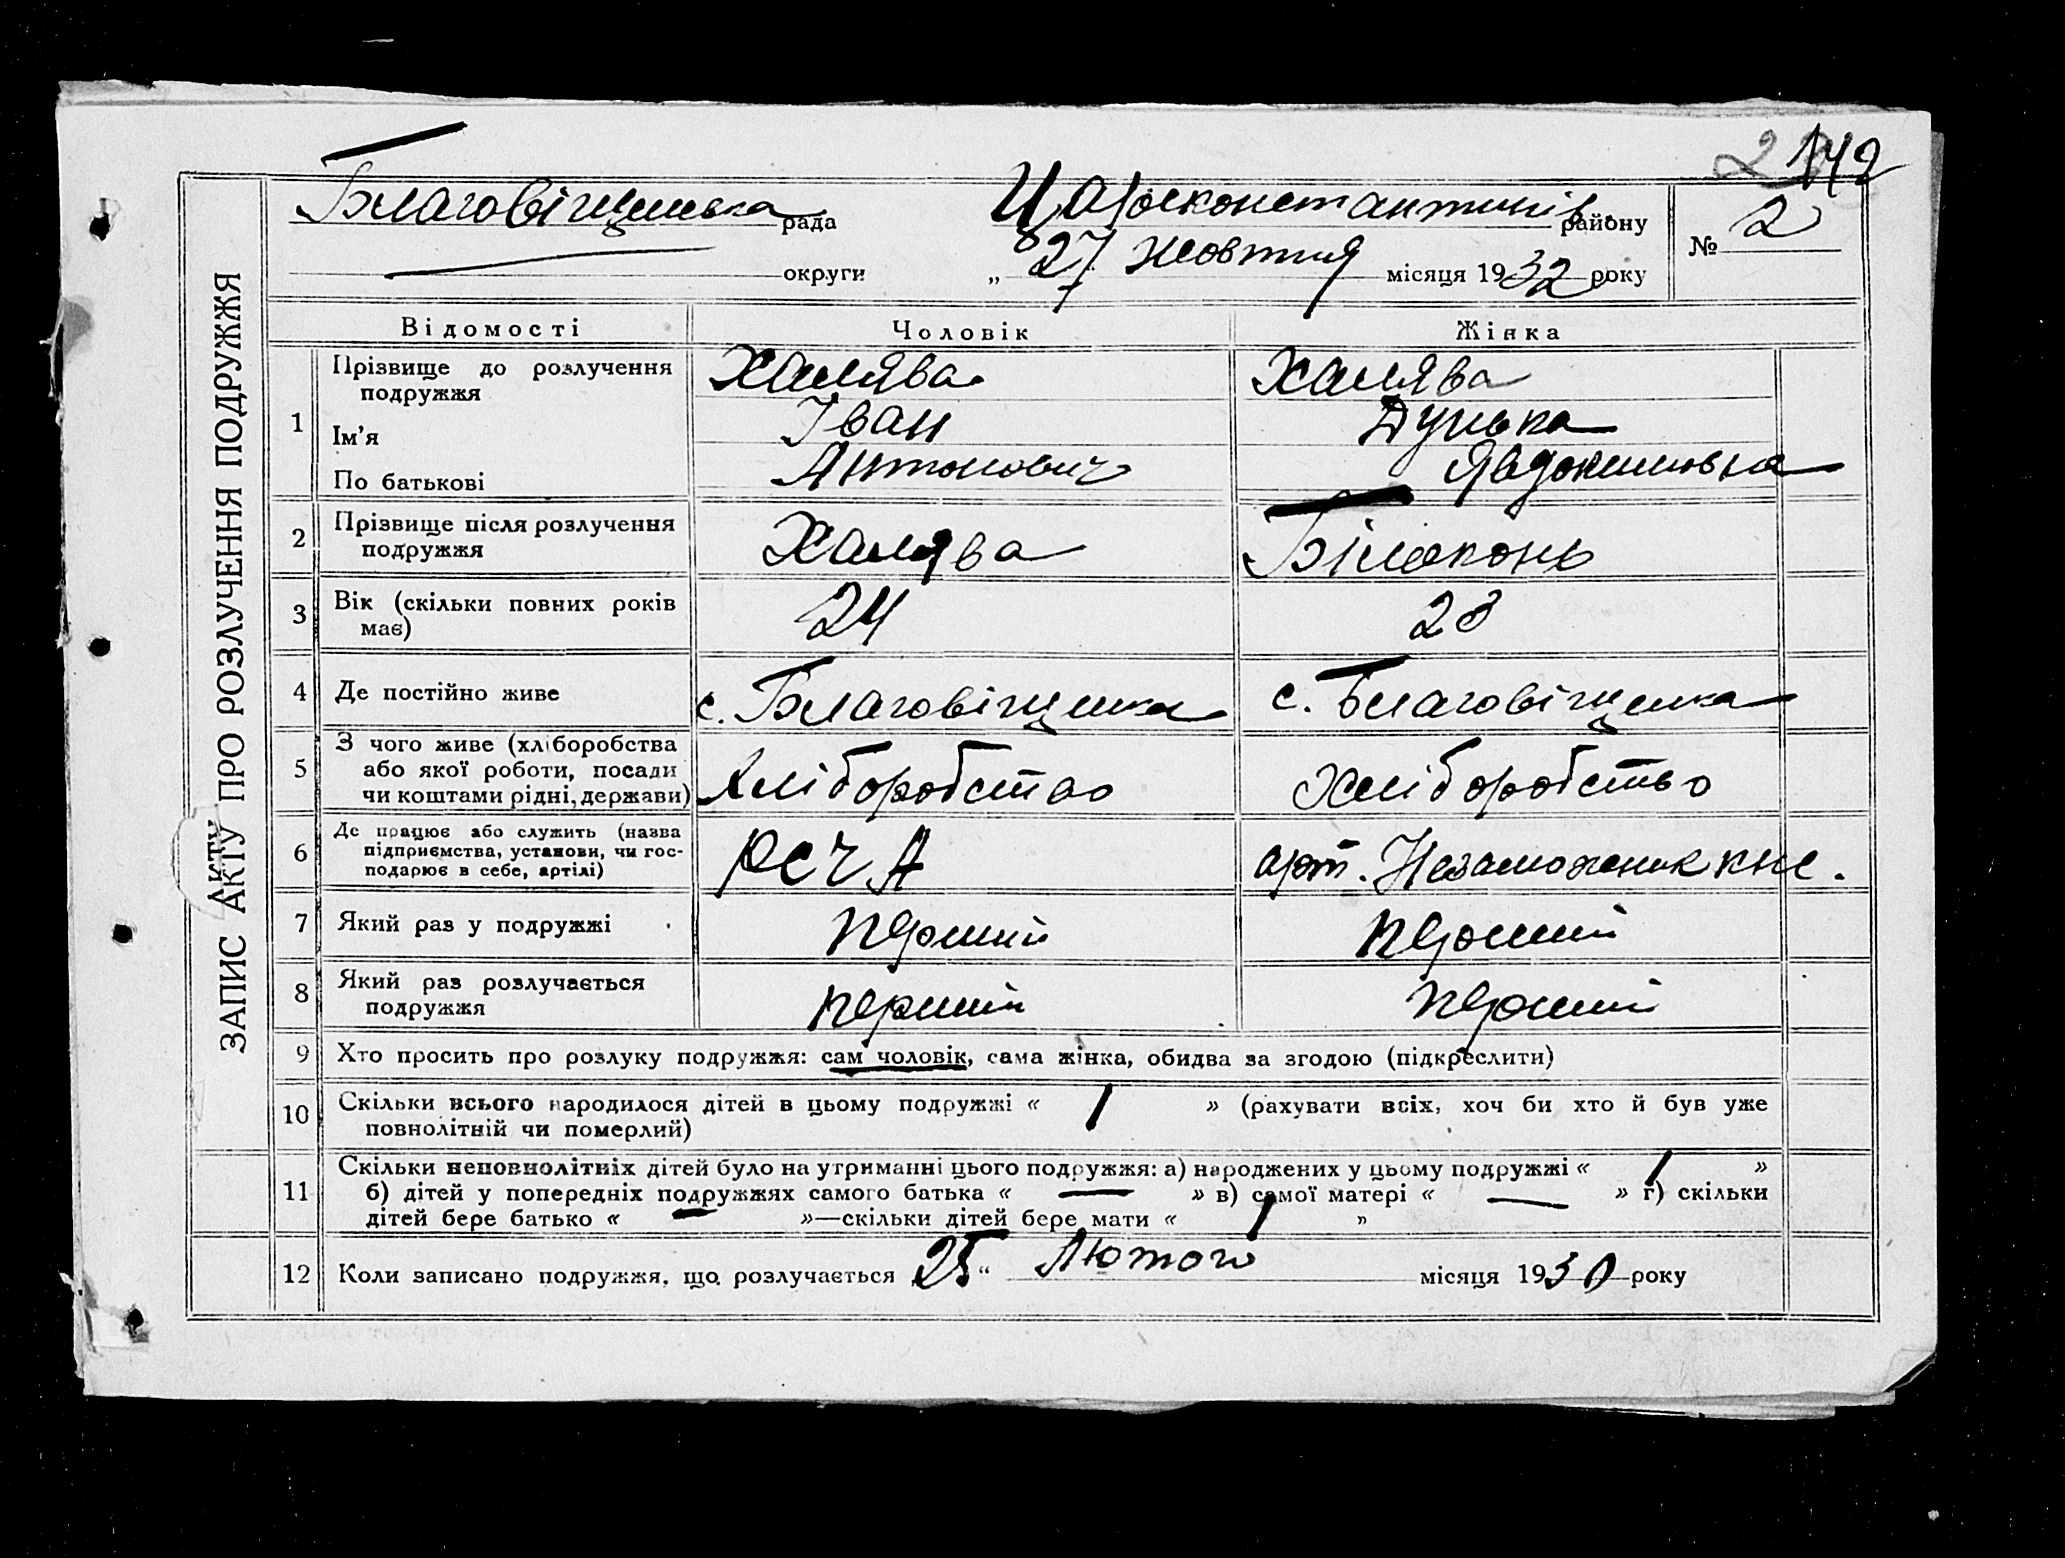 142
Благовіщенська рада Царсконстантинів. району № 2
округи „ 27 жовтня місяця 1932 року
ЗАПИС АКТУ ПРО РОЗЛУЧЕННЯ ПОДРУЖЖЯ
АКТУ
Відомості Чоловік Жінка
1 Прізвище до розлучення подружжя Халява Халява
Ім'я Іван Дунька
По батькові Антонович Явдокимовна
2 Прізвище після розлучення подружжя Халява Білоконь
3 Вік (скільки повних років має) 24 23
4 Де постійно живе с. Благовіщенка с. Благовіщенка
5 З чого живе (хліборобства або якої роботи, посади чи коштами рідні, держави) Хліборобство Хліборобство
6 Де працює або служить (назва підприємства, установи, чи господарює в себе, артілі) РСЧА арт. Незаможник
7 Який раз у подружжі перший перший
8 Який раз розлучається подружжя перший перший
9 Хто просить про розлуку подружжя: сам чоловік, сама жінка, обидва за згодою (підкреслити)
10 Скільки всього народилося дітей в цьому подружжі « 1 » (рахувати всіх, хоч би хто й був уже
повнолітній чи померлий)
11 Скільки неповнолітніх дітей було на утриманні цього подружжя: а) народжених у цьому подружжі « 1 »
б) дітей у попередніх подружжях самого батька « — » в) самої матері « — » г) скільки
дітей бере батько « — »—скільки дітей бере мати « 1 »
12 Коли записано подружжя, що розлучається „25“ Лютого місяця 1930 року